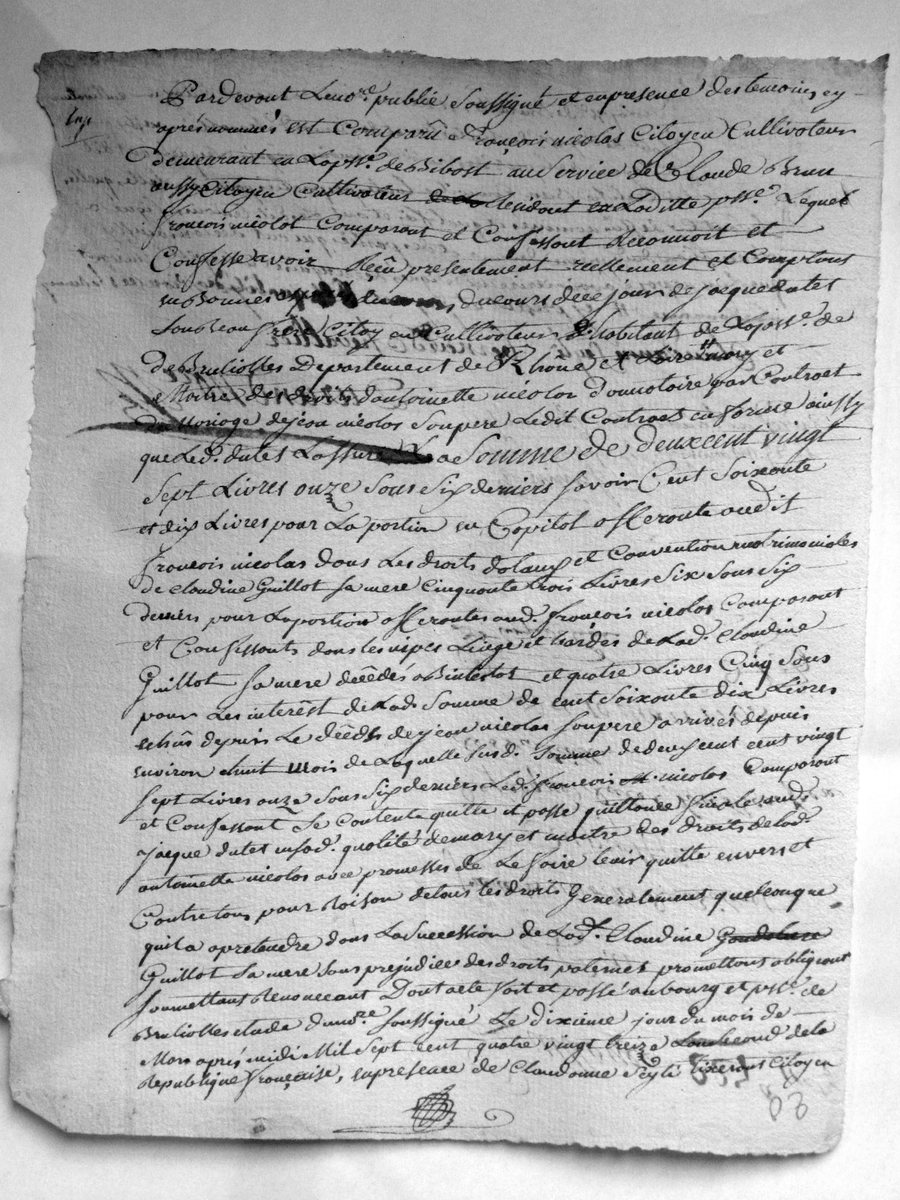 Exp.
Pardevant Le no.re public Soussigné et en presence des temoins cy
après nommés est Comparû François nicolas Citoyen Cultivateur
demeurant en La pss.e de Bibost au Service de Claude Brun
aussy Citoyen Cultivateur residant en Laditte pss.e Lequel
françois nicolas Comparant et Confessant Reconnoit et
Confesse avoir Recû presentement reellement et Comptant
en Bonnes du Cours de ce jour de jacque dutet
Son Beau frere Citoyen Cultivateur habitant de La pss.e de
de Brullioles Departement de Rhône et mary et
Maitre des droits d'antoinette nicolas donnotaire par Contract
du Mariage de jean nicolas Son pere Ledit Contract en forme ainssy
que Led. dutet L'assure La Somme de deux cent vingt
Sept Livres onze Sous Six deniers Savoir Cent Soixante
et dix Livres pour La portion en Capital afferante audit
françois nicolas dans Les droits et Convention matrimoniales
de Claudine Guillot Sa mere Cinquante trois Livres Six Sous Six
deniers pour La portion afferantes aud. françois nicolas Comparant
et Confessants dans les nipes Linge et hardes de Lad. Claudine
Guillot Sa mere décédés abintestat et quatre Livres Cinq Sous
pour Les interêt de Lad. Somme de cent Soixante dix Livres
echûs depuis Le décéds de jean nicolas Son pere arrivés depuis
environ huit mois de Laquelle Susd. Somme de deux cent cent vingt
Sept Livres onze Sous Six deniers Led. françois nicolas Comparant
et Confessant Se Contente quitte et passe quittance finale aud.
jacque dutet en sad. qualité de mary et maitre des droits de lad.
antoinette nicolas avec promesses de Le faire tenir quitte envers et
Contre tous pour Raison de tous les droits Generalement quelconque
qu'il a a pretendre dans La Succession de Lad. Claudine Goudoleur
Guillot Sa mere Sans prejudice des droits paternels promettant obligeant
Soumettant Renonceant Dont acte fait et passé au bourg et pss.e de
Brullioles etude du no.re Soussigné Le dixième jour du mois de
Mars après midi Mil Sept cent quatre vingt treize de la
Republique Française, en presence de Citoyen